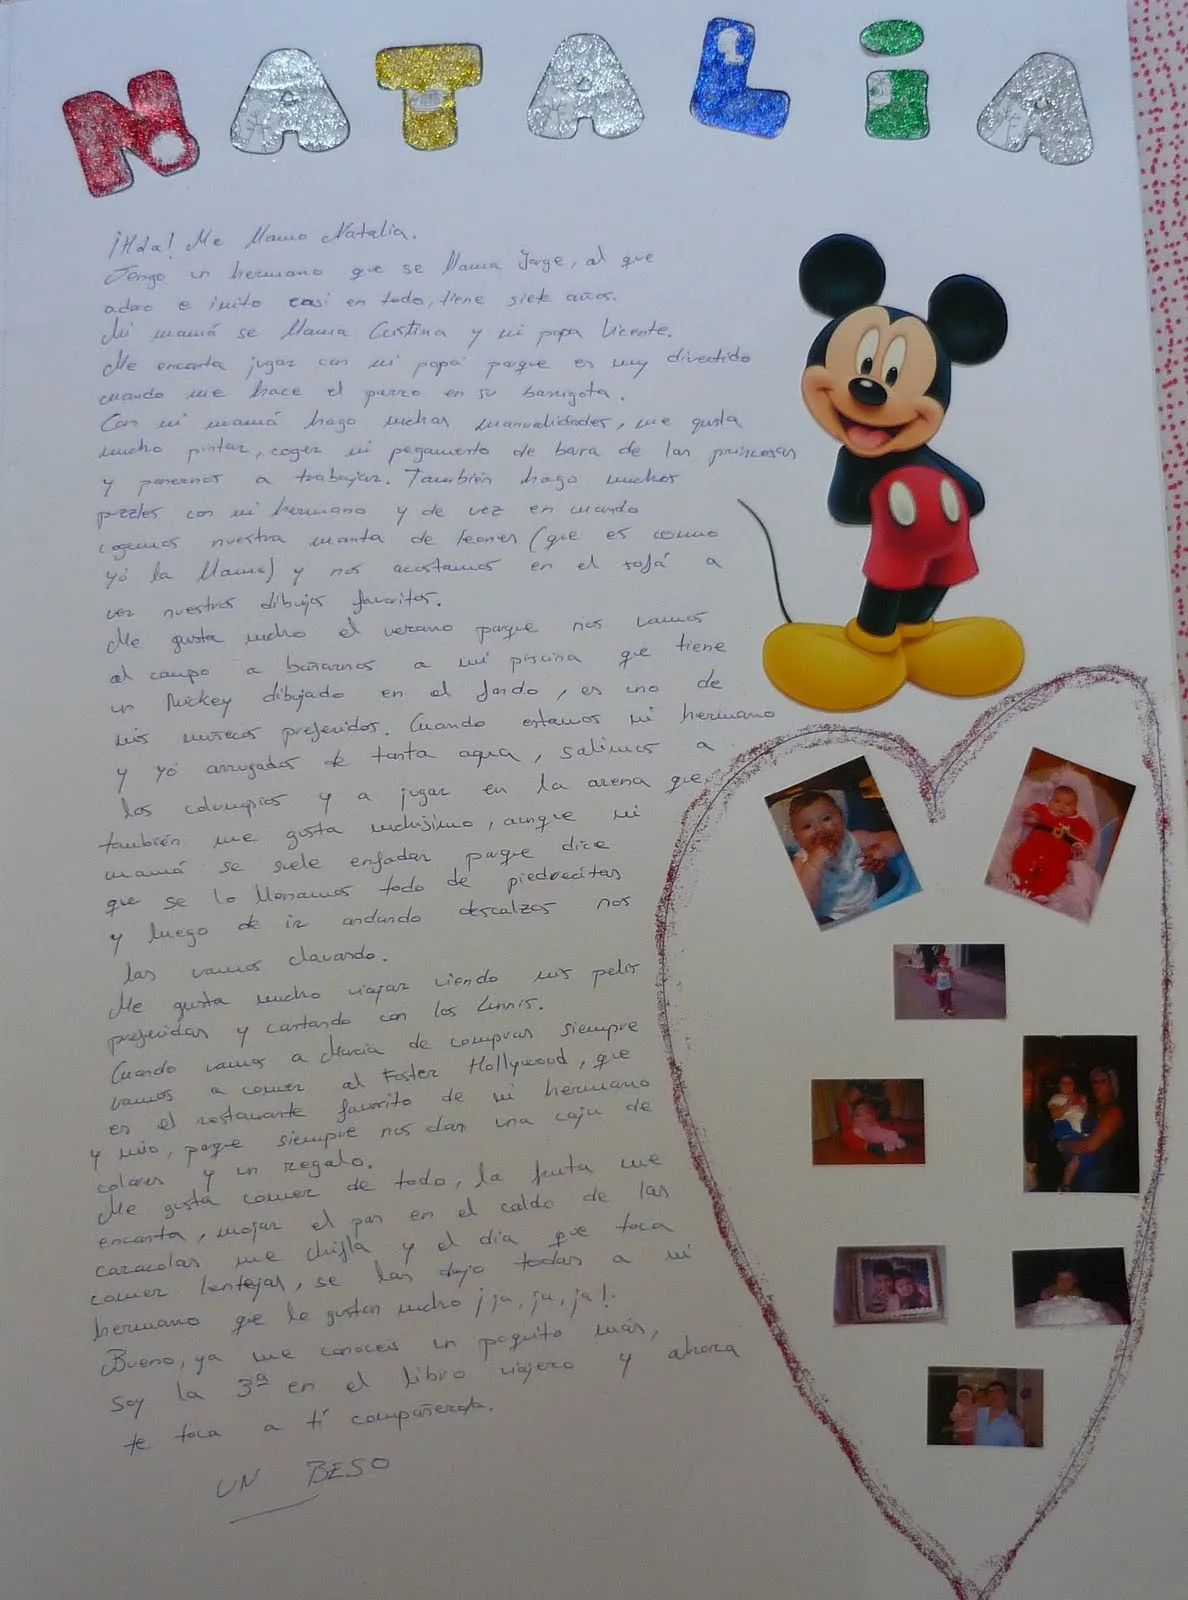 NATALiA
¡Hola! Me llamo Natalia.
Tengo un hermano que se llama Jorge, al que
adoro e imito casi en todo, tiene siete años.
Mi mamá se llama Cristina y mi papa Vicente.
Me encanta jugar con mi papá porque es muy divertido
cuando me hace el purro en su barrigota.
Con mi mamá hago muchas manualidades, me gusta
mucho pintar, coger mi pegamento de barra de las princesas
y ponernos a trabajar. También hago muchos
puzzles con mi hermano y de vez en cuando
cogemos nuestra manta de leones (que es como
yó la llamo) y nos acostamos en el sofá a
ver nuestros dibujos favoritos.
Me gusta mucho el verano porque nos vamos
al campo a bañarnos a mi piscina que tiene
un Mickey dibujado en el fondo, es uno de
mis muñecos preferidos. Cuando estamos mi hermano
y yó arrugados de tanta agua, salimos a
los columpios y a jugar en la arena que
también me gusta muchísimo, aunque mi
mamá se suele enfadar porque dice
que se lo llenamos todo de piedrecitas
y luego de ir andando descalzos nos
las vamos clavando.
Me gusta mucho viajar viendo mis pelis
preferidas y cantando con los Lunnis.
Cuando vamos a Murcia de compras siempre
vamos a comer al Foster Hollywood, que
es el restaurante favorito de mi hermano
y mio, porque siempre nos dan una caja de
colores y un regalo.
Me gusta comer de todo, la fruta me
encanta, mojar el pan en el caldo de las
caracolas me chifla y el día que toca
comer lentejas, se las dejo todas a mi
hermano que le gustan mucho ¡ja, ja, ja!.
Bueno, ya me conoceis un poquito más,
soy la 3ª en el libro viajero y ahora
te toca a tí compañero/a.
UN BESO